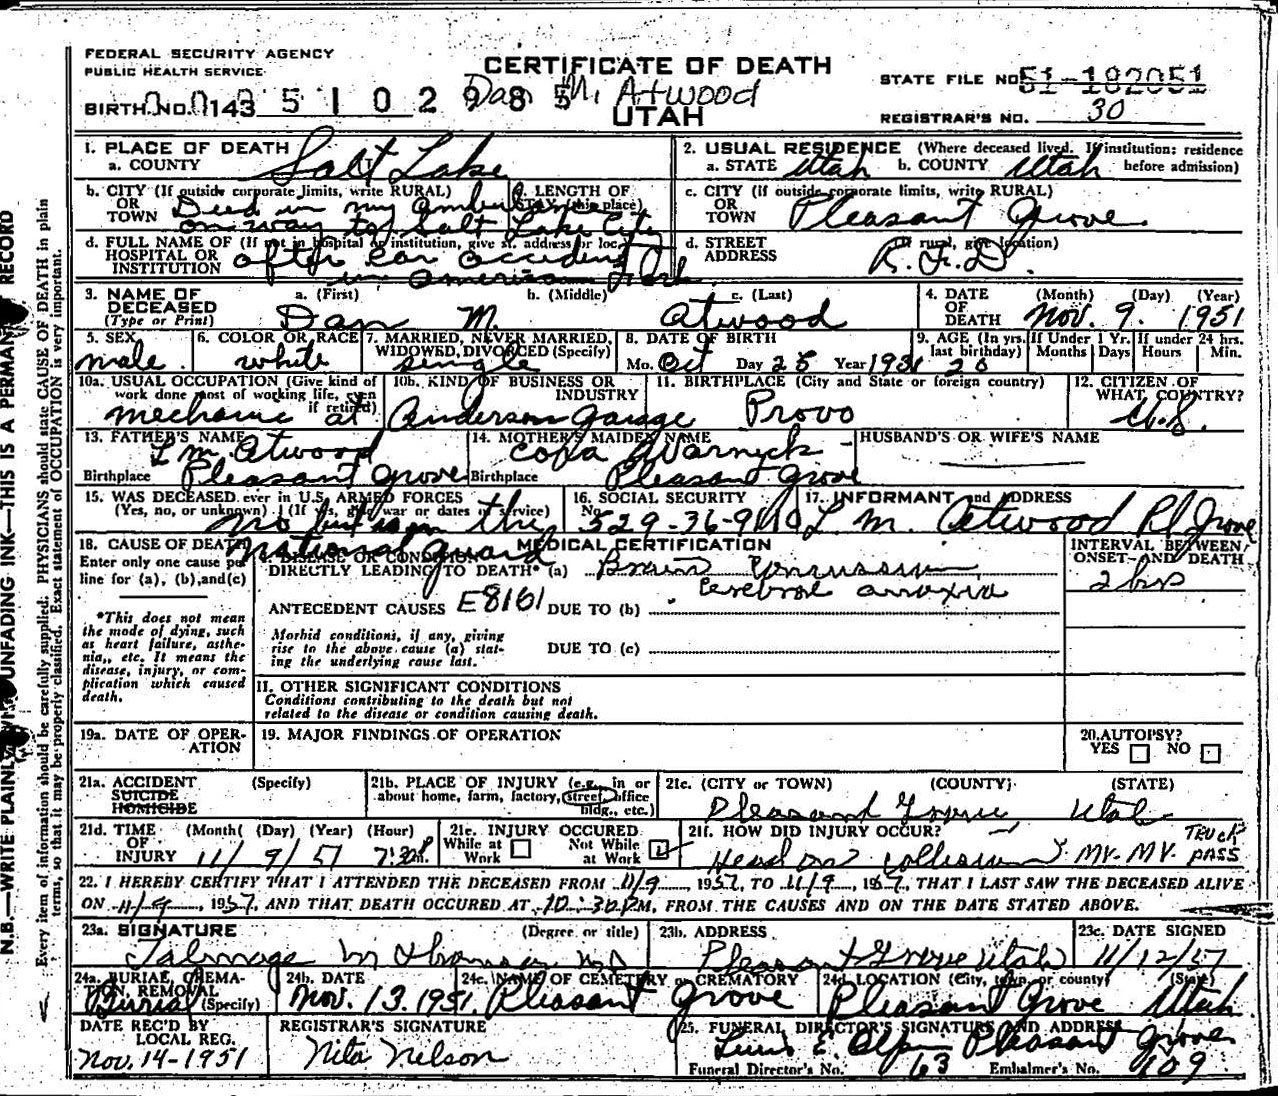 FEDERAL SECURITY AGENCY
PUBLIC HEALTH SERVICE
CERTIFICATE OF DEATH
STATE FILE NO. 51-182051
BIRTH NO. 0143 5 1 0 2 9 8 5
Dan M. Atwood
UTAH
REGISTRAR'S NO. 30
1. PLACE OF DEATH
a. COUNTY Salt Lake
2. USUAL RESIDENCE (Where deceased lived. If institution: residence before admission)
a. STATE Utah b. COUNTY Utah
b. CITY (If outside corporate limits, write RURAL) OR TOWN
c. LENGTH OF STAY (in this place)
Died in my ambulance
on way to Salt Lake City
c. CITY (If outside corporate limits, write RURAL) OR TOWN Pleasant Grove
d. FULL NAME OF (If not in hospital or institution, give st. address or loc.) HOSPITAL OR INSTITUTION
after car accident
in American Fork
d. STREET ADDRESS (If rural, give location) R.F.D.
3. NAME OF DECEASED (Type or Print)
a. (First) b. (Middle) c. (Last)
Dan M. Atwood
4. DATE OF DEATH (Month) (Day) (Year)
Nov. 9. 1951
5. SEX male
6. COLOR OR RACE white
7. MARRIED, NEVER MARRIED, WIDOWED, DIVORCED (Specify) single
8. DATE OF BIRTH
Mo. Oct Day 25 Year 1931
9. AGE (In yrs. last birthday) 20
If Under 1 Yr. Months Days
If under 24 hrs. Hours Min.
10a. USUAL OCCUPATION (Give kind of work done most of working life, even if retired)
mechanic at
10b. KIND OF BUSINESS OR INDUSTRY
Anderson Garage
11. BIRTHPLACE (City and State or foreign country)
Provo
12. CITIZEN OF WHAT COUNTRY?
U.S.
13. FATHER'S NAME
L M. Atwood
Birthplace Pleasant Grove
14. MOTHER'S MAIDEN NAME
Cora Warnick
Birthplace Pleasant Grove
HUSBAND'S OR WIFE'S NAME
15. WAS DECEASED ever in U.S. ARMED FORCES
(Yes, no, or unknown) (If yes, give war or dates of service)
no but is in the
National Guard
16. SOCIAL SECURITY No. 529-36-9110
17. INFORMANT and ADDRESS
L M. Atwood Pl Grove
18. CAUSE OF DEATH
Enter only one cause per line for (a), (b), and (c)
*This does not mean the mode of dying, such as heart failure, asthenia, etc. It means the disease, injury, or complication which caused death.
MEDICAL CERTIFICATION
I. DISEASE OR CONDITION
DIRECTLY LEADING TO DEATH* (a) Brain Concussion
cerebral anoxia
INTERVAL BETWEEN ONSET AND DEATH
2 hrs
ANTECEDENT CAUSES E8161 DUE TO (b)
Morbid conditions, if any, giving rise to the above cause (a) stating the underlying cause last.
DUE TO (c)
II. OTHER SIGNIFICANT CONDITIONS
Conditions contributing to the death but not related to the disease or condition causing death.
19a. DATE OF OPERATION
19. MAJOR FINDINGS OF OPERATION
20. AUTOPSY?
YES NO
21a. ACCIDENT (Specify)
SUICIDE
HOMICIDE
21b. PLACE OF INJURY (e.g., in or about home, farm, factory, street, office bldg., etc.)
21c. (CITY or TOWN) (COUNTY) (STATE)
Pleasant Grove Utah
21d. TIME OF INJURY (Month) (Day) (Year) (Hour)
11/ 9/ 51 7:30 P m.
21e. INJURY OCCURED
While at Work Not While at Work
21f. HOW DID INJURY OCCUR?
Head on Collision MV-MV- TRUCK PASS
22. I HEREBY CERTIFY THAT I ATTENDED THE DECEASED FROM 11/9, 1951, TO 11/9, 1951, THAT I LAST SAW THE DECEASED ALIVE
ON 11-9, 1951, AND THAT DEATH OCCURED AT 10:30 P.M, FROM THE CAUSES AND ON THE DATE STATED ABOVE.
23a. SIGNATURE (Degree or title)
Talmage M D
23b. ADDRESS
Pleasant Grove Utah
23c. DATE SIGNED
11/12/51
24a. BURIAL, CREMATION, REMOVAL (Specify)
Burial
24b. DATE
Nov. 13. 1951
24c. NAME OF CEMETERY or CREMATORY
Pleasant Grove
24d. LOCATION (City, town, or county) (State)
Pleasant Grove Utah
DATE REC'D BY LOCAL REG.
Nov. 14-1951
REGISTRAR'S SIGNATURE
Neta Nelson
25. FUNERAL DIRECTOR'S SIGNATURE AND ADDRESS
E. Pleasant Grove
Funeral Director's No. 163 Embalmer's No. 109
N.B.—WRITE PLAINLY WITH UNFADING INK—THIS IS A PERMANENT RECORD
Every item of information should be carefully supplied. PHYSICIANS should state CAUSE OF DEATH in plain
terms, so that it may be properly classified. Exact statement of OCCUPATION is very important.